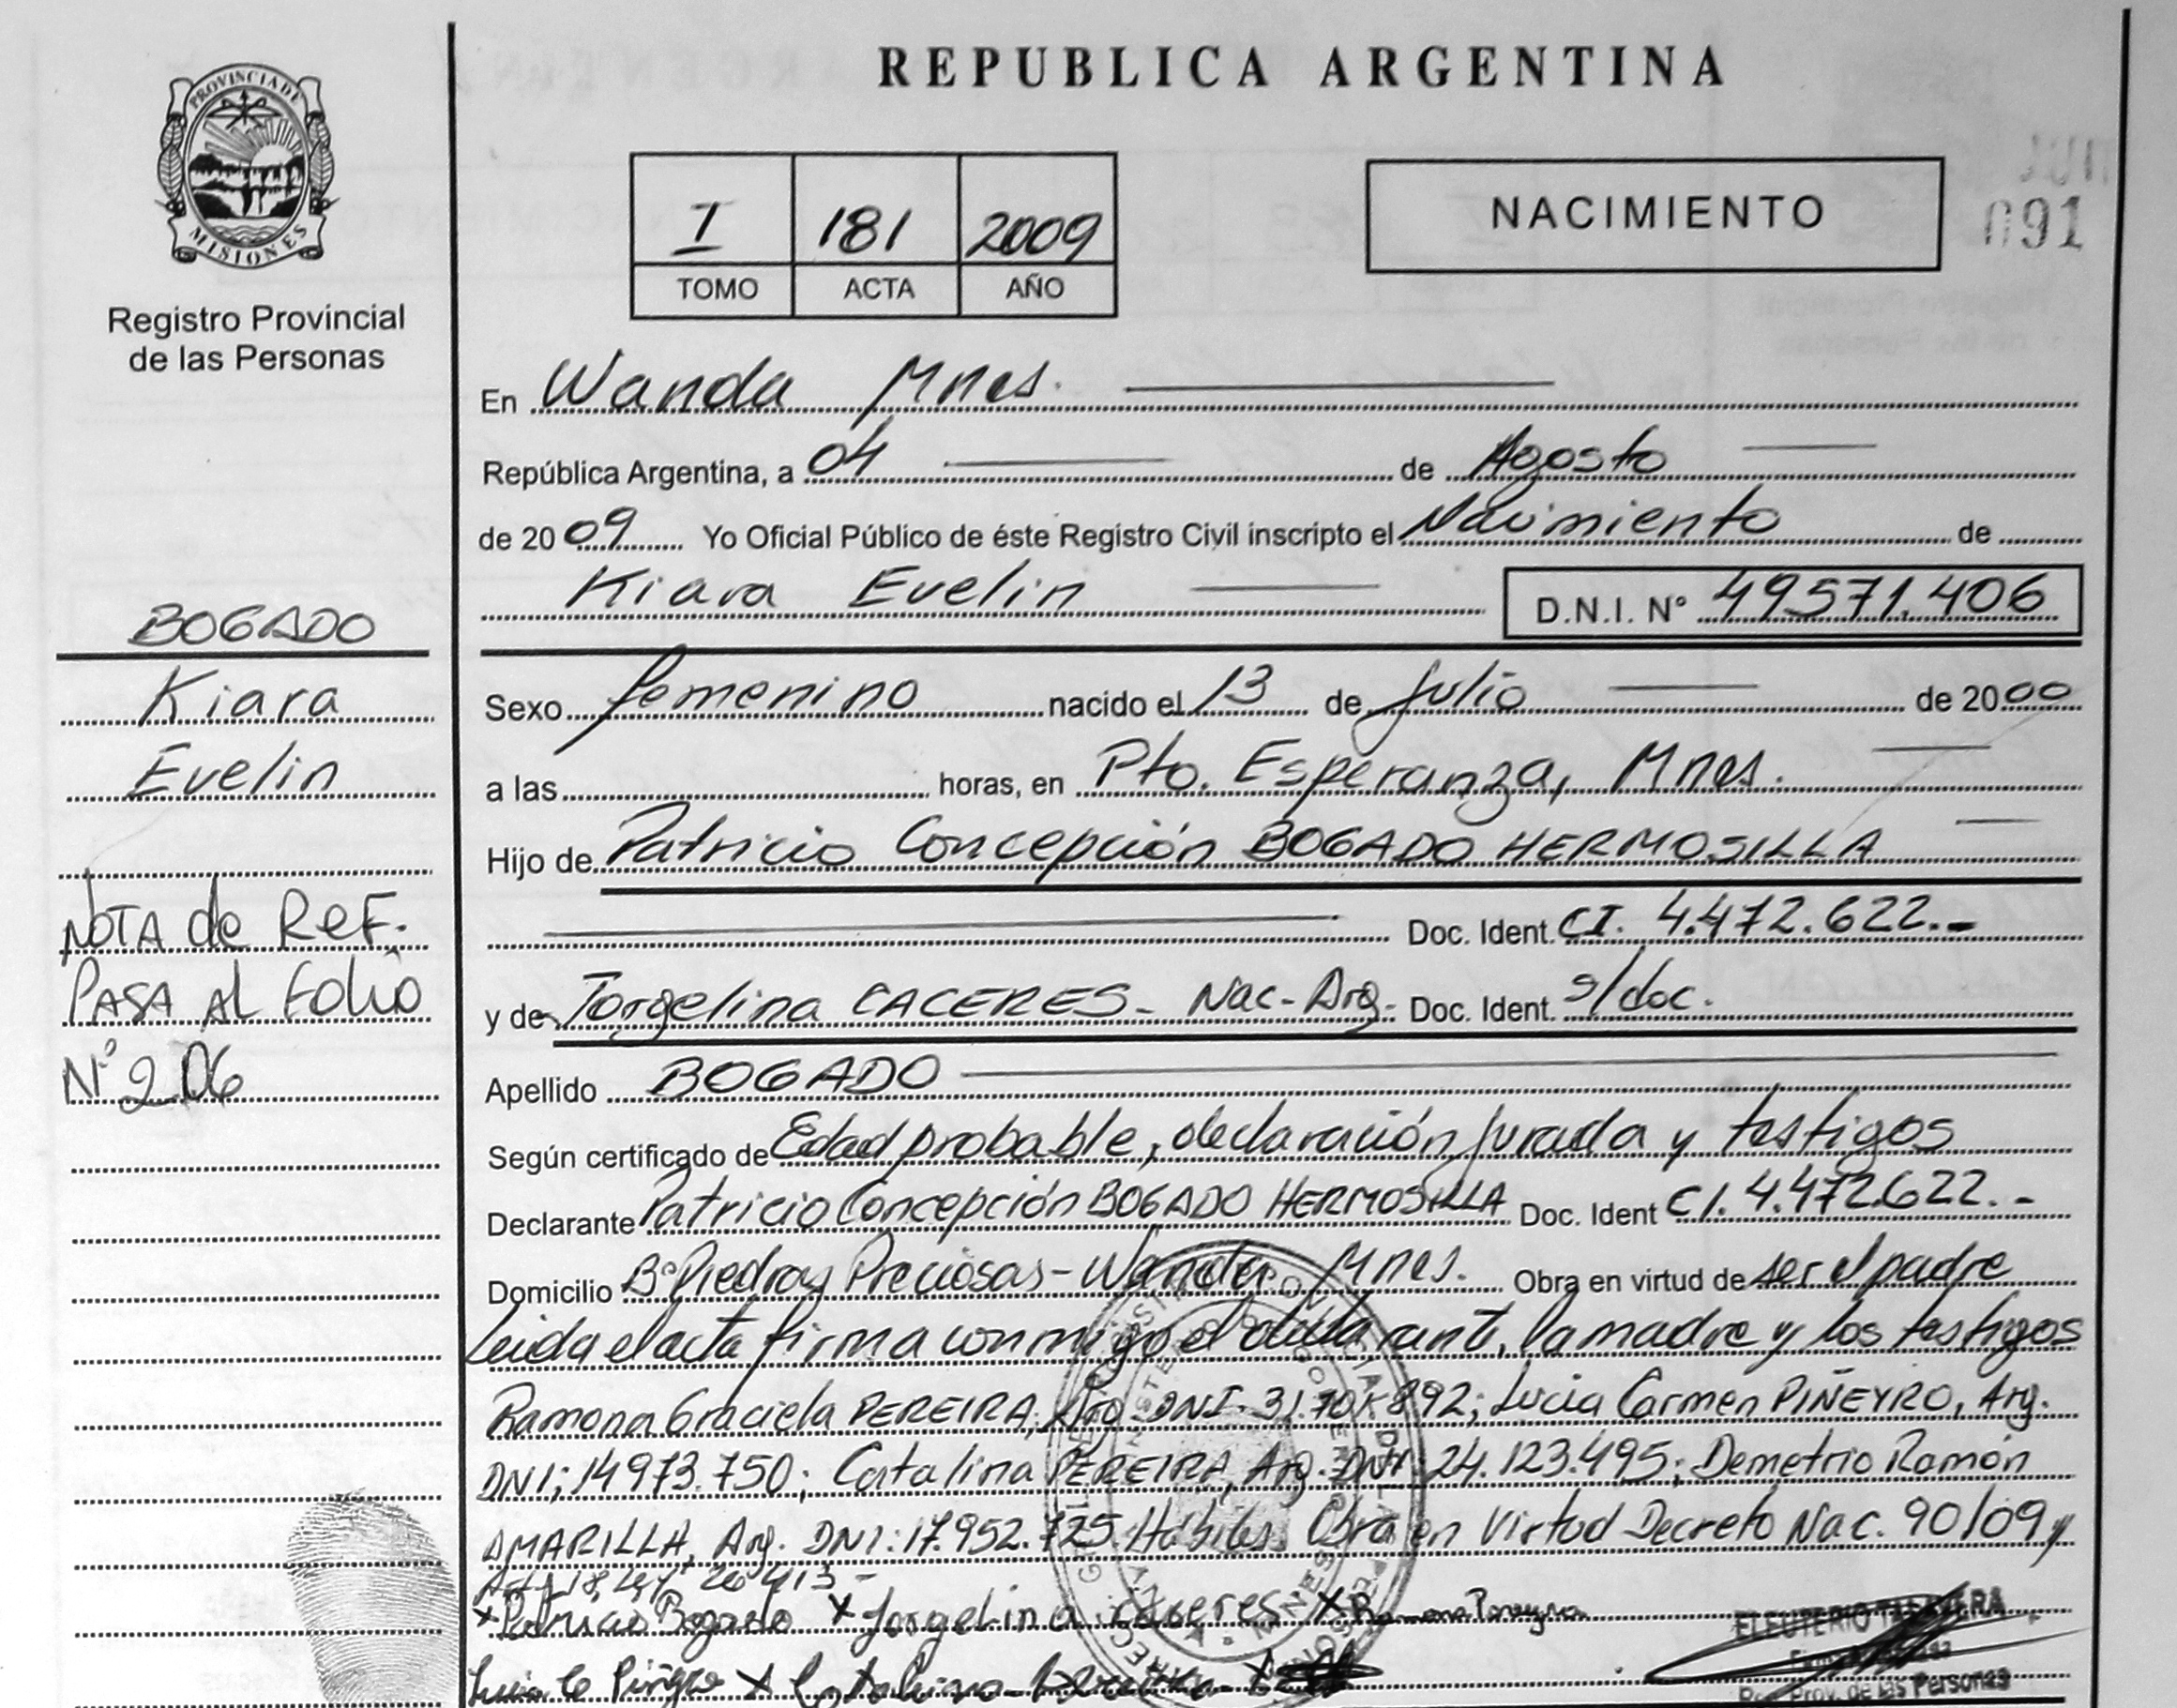 REPUBLICA ARGENTINA
PROVINCIA DE
MISIONES
Registro Provincial
de las Personas
I 181 2009
TOMO ACTA AÑO
NACIMIENTO
091
En Wanda Mnes.
República Argentina, a 04 de Agosto
de 2009 Yo Oficial Público de éste Registro Civil inscripto el Nacimiento de
Kiara Evelin D.N.I. N° 49571.406
BOGADO
Kiara
Evelin
NOTA de REF.
PASA AL FOLIO
N° 206
Sexo femenino nacido el 13 de Julio de 2000
a las horas, en Pto. Esperanza, Mnes.
Hijo de Patricio Concepción BOGADO HERMOSILLA
Doc. Ident. CI. 4.472.622.-
y de Jorgelina CACERES- Nac- Arg- Doc. Ident. s/doc.
Apellido BOGADO
Según certificado de Edad probable, declaración Jurada y testigos
Declarante Patricio Concepción BOGADO HERMOSILLA Doc. Ident CI. 4.472622.-
Domicilio B° Piedras Preciosas - Wanda Mnes. Obra en virtud de ser el padre
Leida el acta firma conmigo el declarante, la madre y los testigos
Ramona Graciela PEREIRA, Arg. DNI. 892; Lucia Carmen PIÑEYRO, Arg.
DNI; 14973.750; Catalina PEREIRA, Arg. DNI: 24.123.495; Demetrio Ramón
AMARILLA, Arg. DNI: 17.952.725. Hábiles. Obra en Virtud Decreto Nac. 90/09 y
18, Ley 26413-
x Patricio Bogado x Jorgelina caseres x Ramona
ELEUTERIO TALAVERA
Reg. Prov. de las Personas